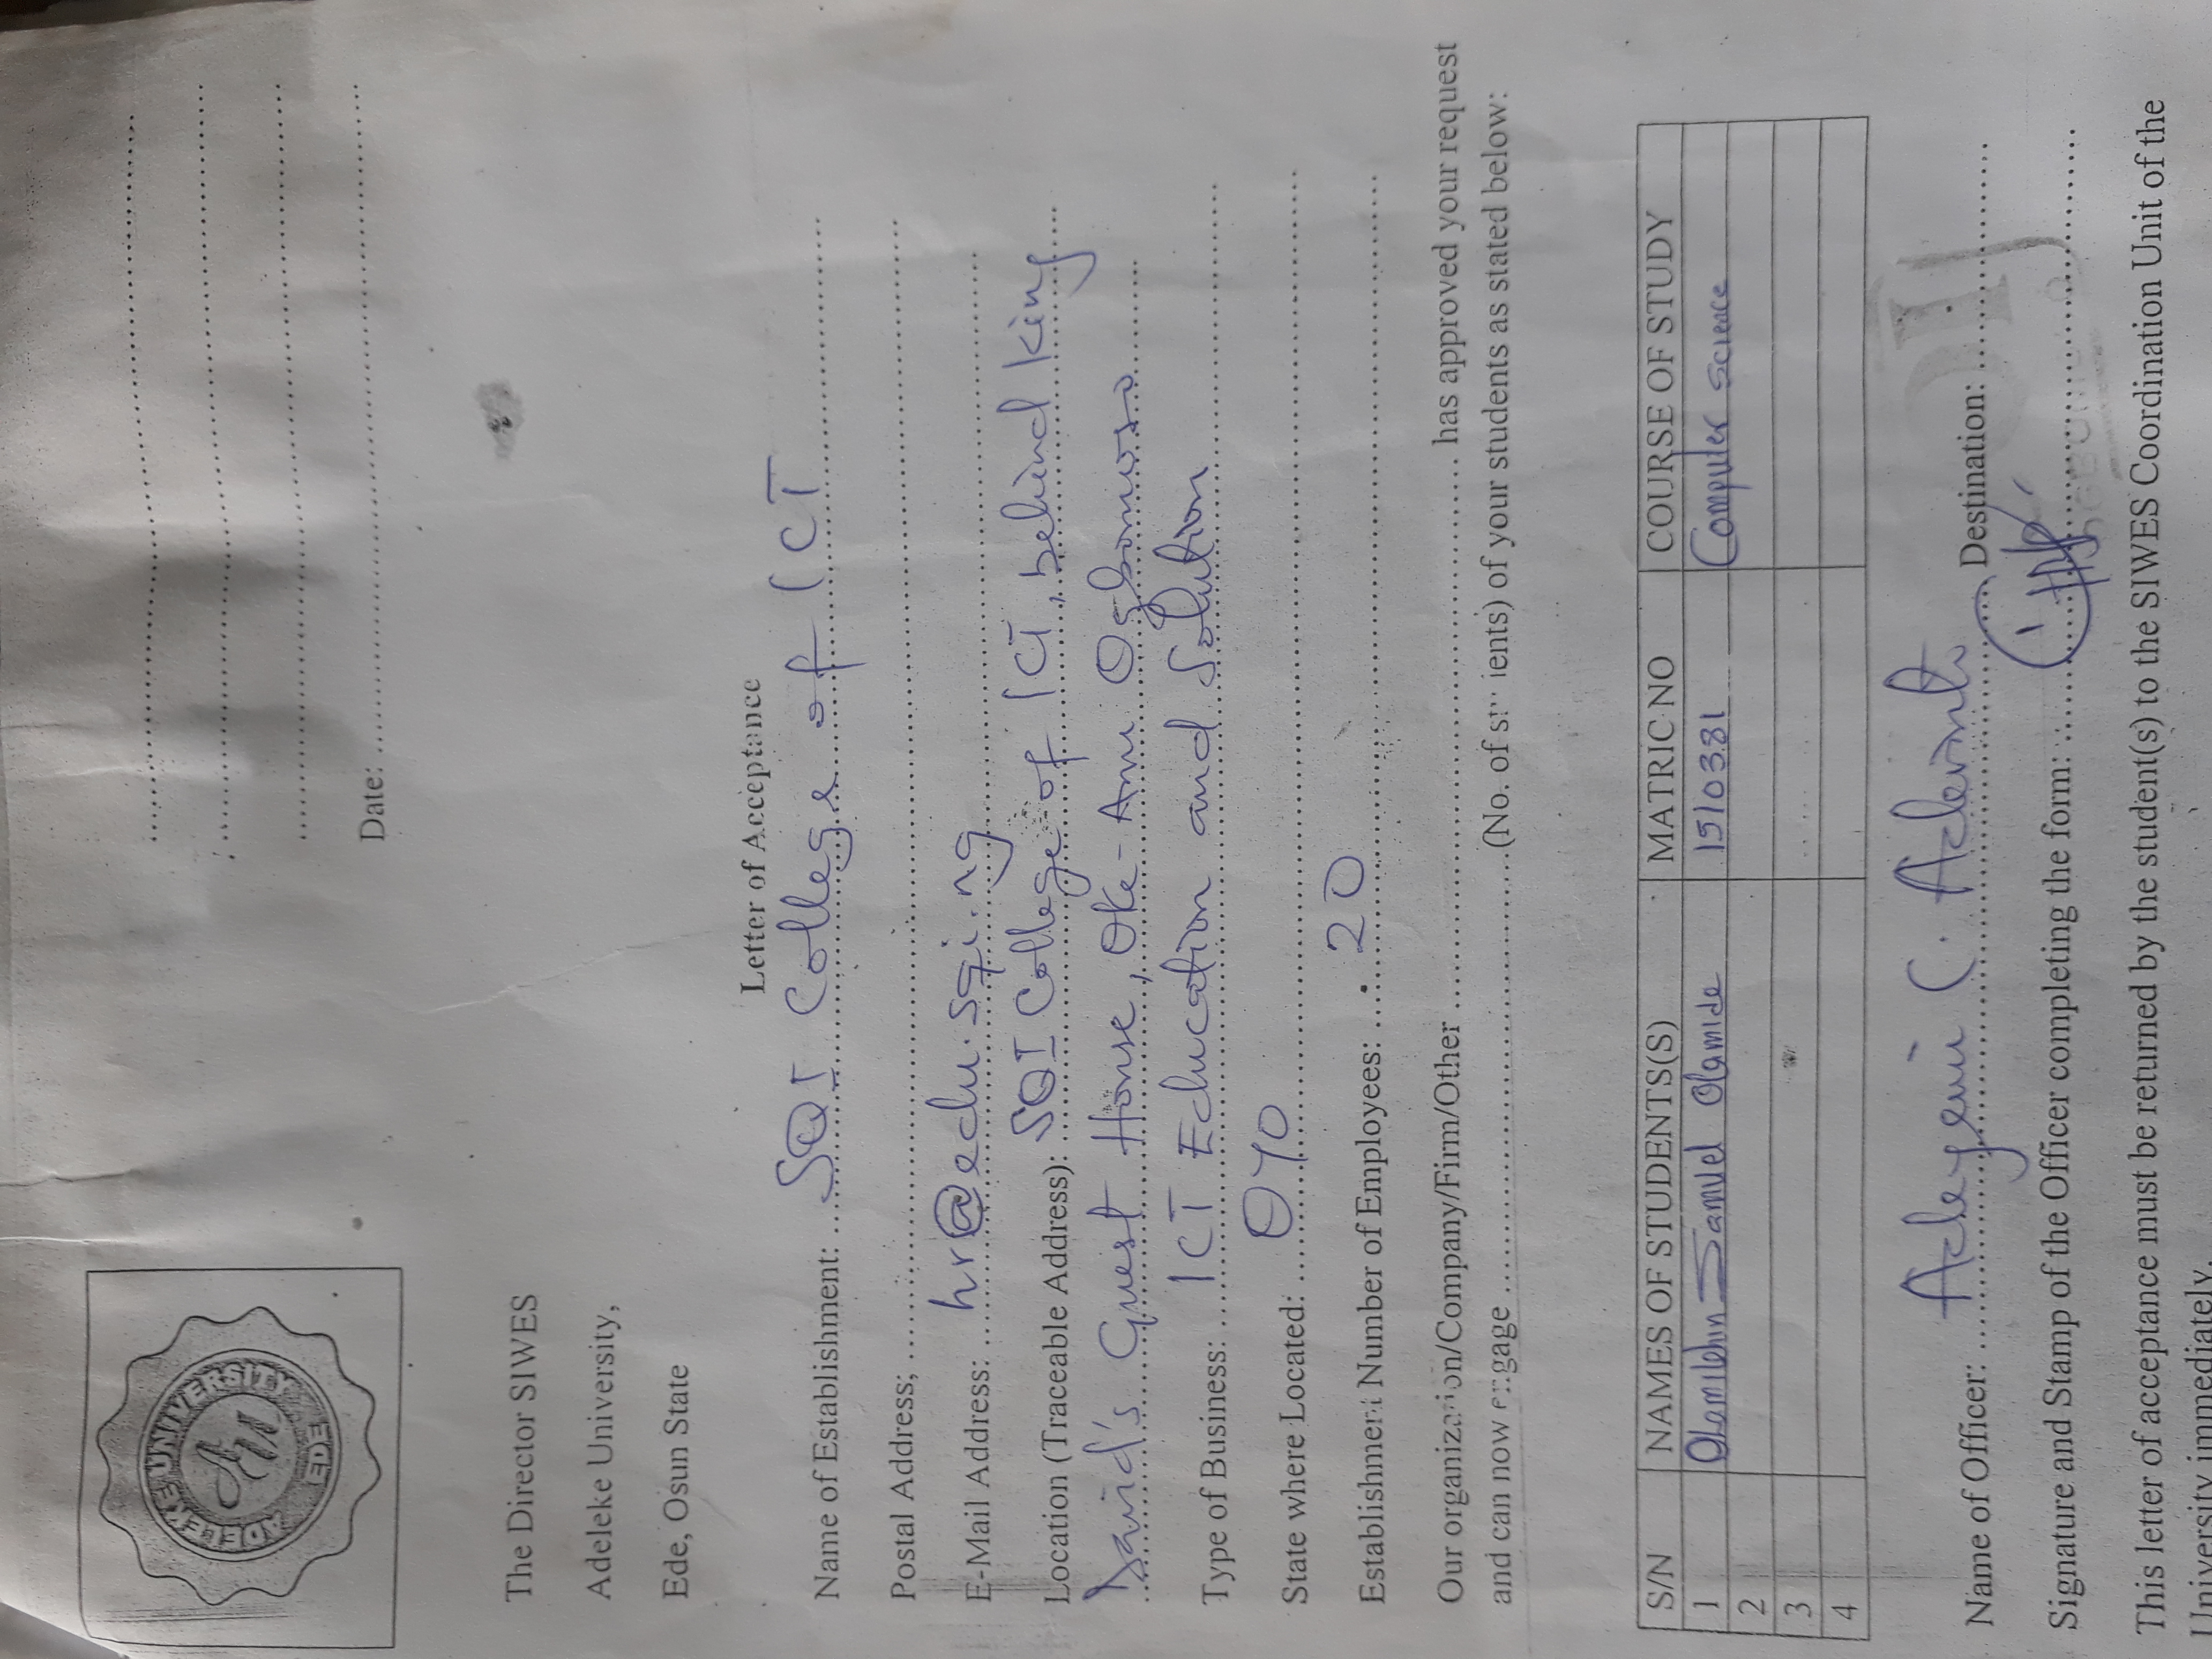 ADELEKE UNIVERSITY
AU
EDE
Date:
The Director SIWES
Adeleke University,
Ede, Osun State
Letter of Acceptance
Name of Establishment: SQI College of ICT
Postal Address;
E-Mail Address: hr@edu.sqi.ng
Location (Traceable Address): SQI College of ICT, behind King
David's Guest House, Oke-Anu Ogbomoso
Type of Business: ICT Education and Solution
State where Located: OYO
Establishment Number of Employees: 20
Our organization/Company/Firm/Other has approved your request
and can now engage (No. of students) of your students as stated below:
S/N NAMES OF STUDENTS(S) MATRIC NO COURSE OF STUDY
1 Samuel Olamide 15/0381 Computer Science
2
3
4
Name of Officer: Adeyemi C. Destination:
Signature and Stamp of the Officer completing the form:
This letter of acceptance must be returned by the student(s) to the SIWES Coordination Unit of the
University immediately.